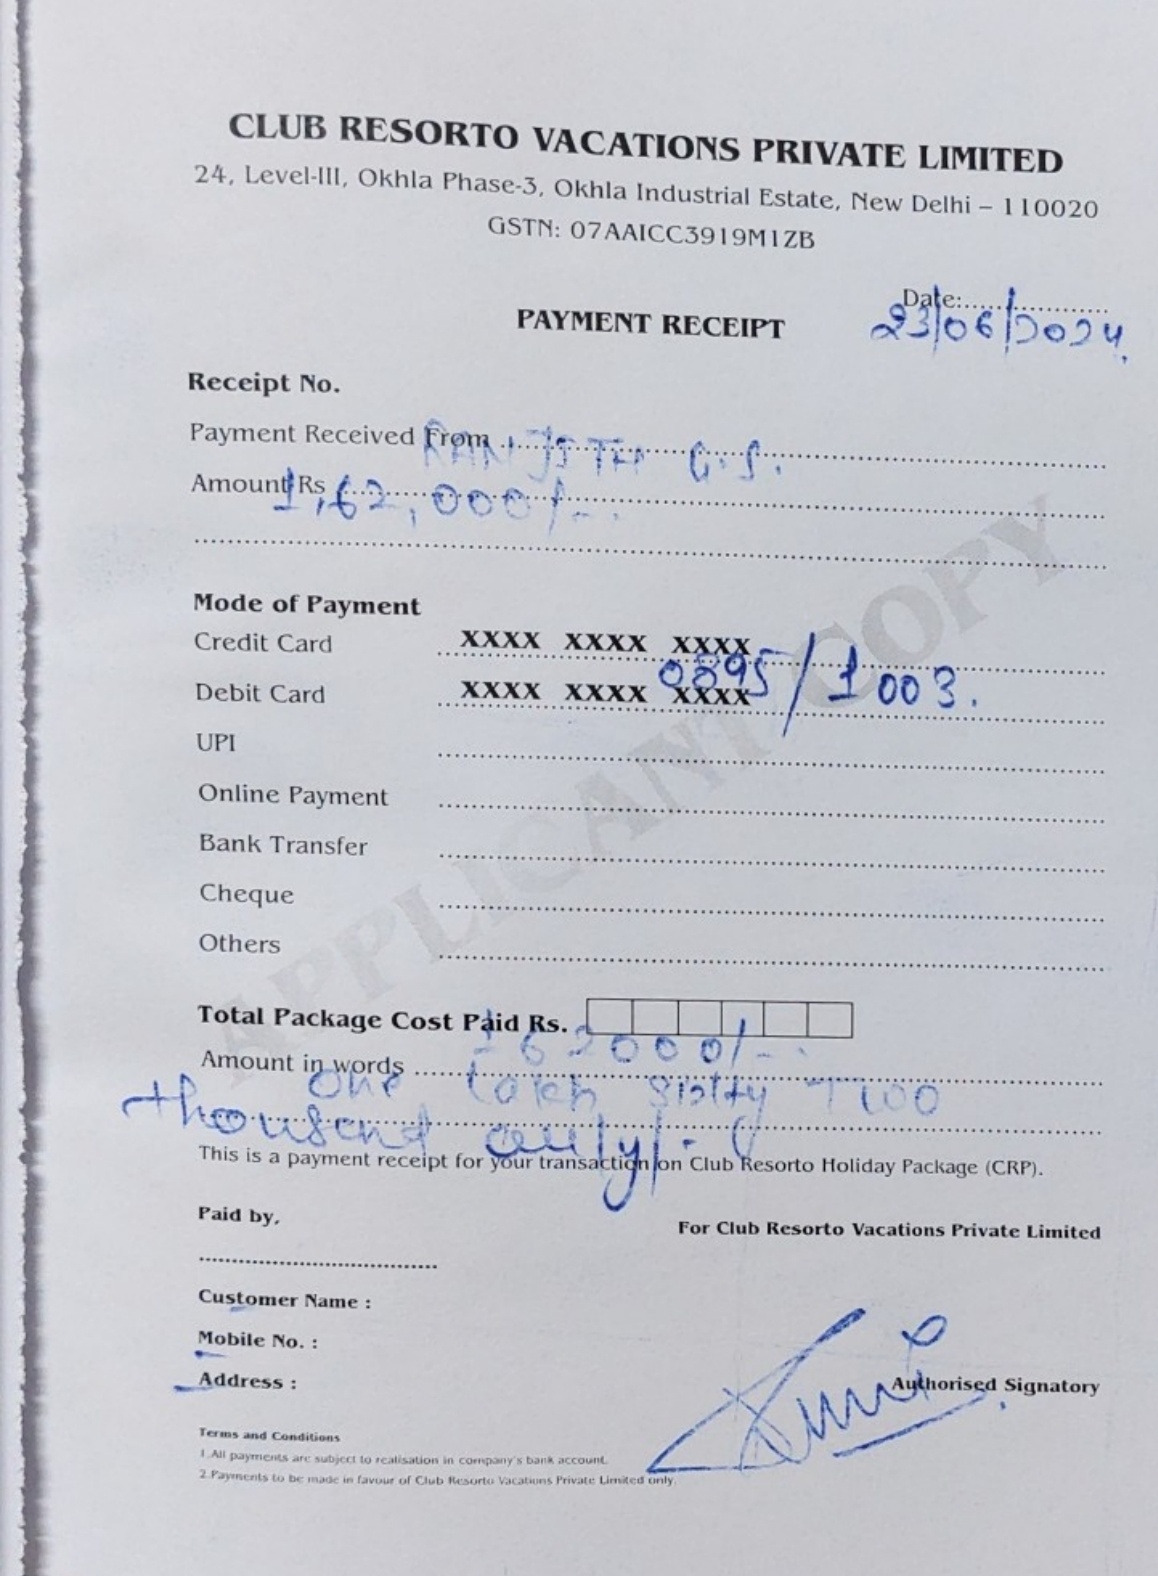 CLUB RESORTO VACATIONS PRIVATE LIMITED
24, Level-III, Okhla Phase-3, Okhla Industrial Estate, New Delhi – 110020
GSTN: 07AAICC3919M1ZB
Date:....................
23/06/2024
PAYMENT RECEIPT
Receipt No.
Payment Received From ....................
RANJITH G.S.
Amount Rs ....................
1,62,000/-.
Mode of Payment
Credit Card XXXX XXXX XXXX
0895/1003.
Debit Card XXXX XXXX XXXX
UPI
Online Payment
Bank Transfer
Cheque
Others
APPLICANT COPY
Total Package Cost Paid Rs.
162000/-.
Amount in words ....................
One Lakh Sixty Two
thousand only/-
This is a payment receipt for your transaction on Club Resorto Holiday Package (CRP).
Paid by,
For Club Resorto Vacations Private Limited
Customer Name :
Mobile No. :
Address :
Authorised Signatory
Terms and Conditions
1.All payments are subject to realisation in company's bank account.
2.Payments to be made in favour of Club Resorto Vacations Private Limited only.